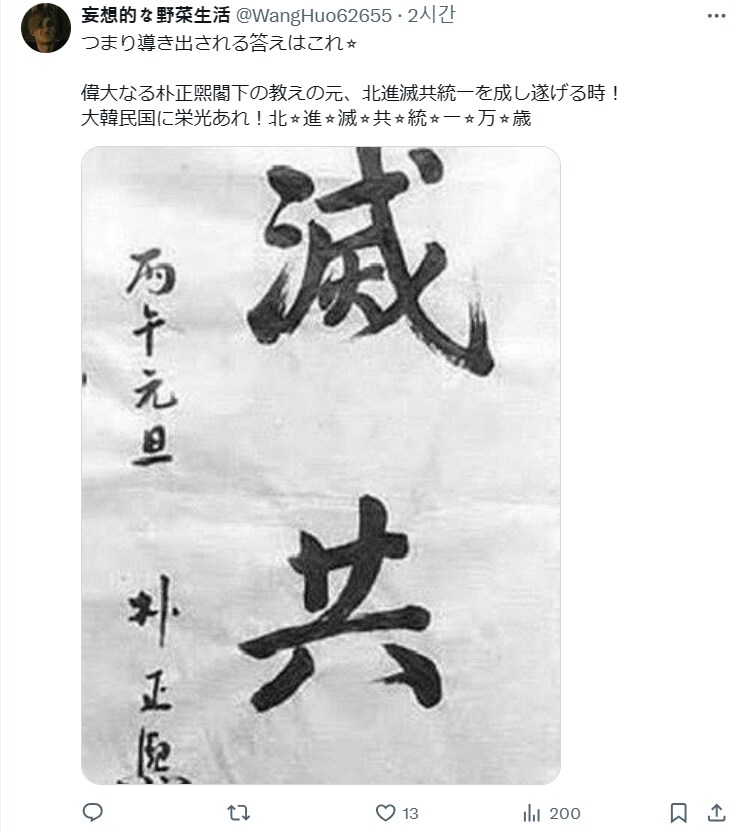 妄想的な野菜生活 @WangHuo62655 · 2시간
つまり導き出される答えはこれ⭐
偉大なる朴正煕閣下の教えの元、北進滅共統一を成し遂げる時！
大韓民国に栄光あれ！北⭐進⭐滅⭐共⭐統⭐一⭐万⭐歳
滅共
丙午元旦
朴正熙
13
200